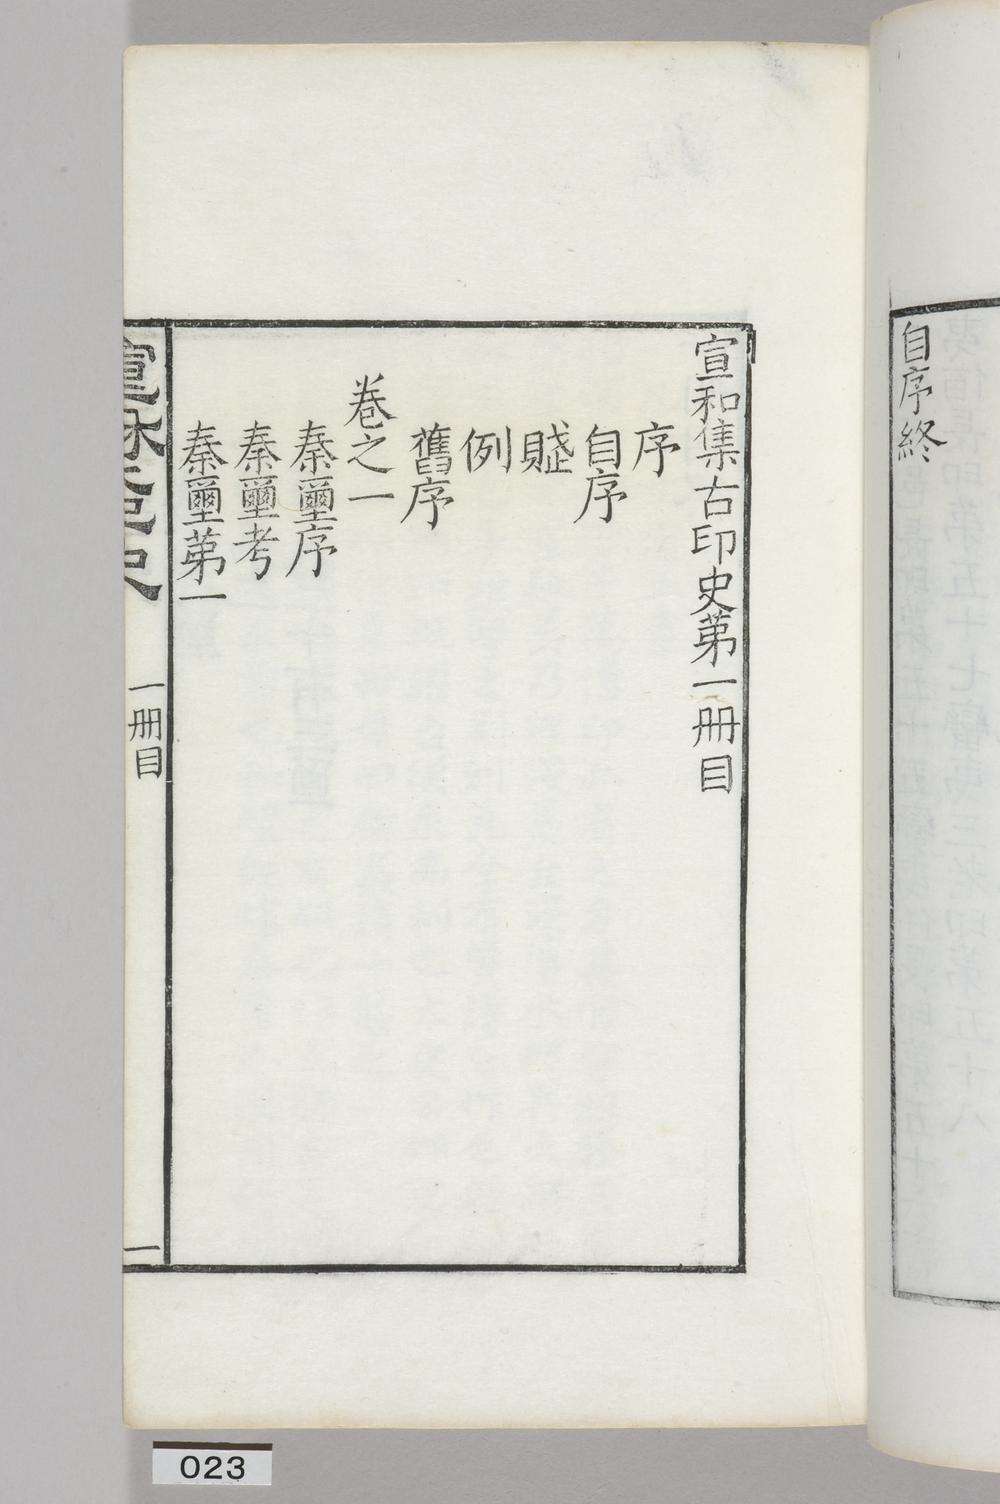 自序終
宣和集古印史第一册目
序
自序
賦
例
舊序
卷之一
秦璽序
秦璽考
秦璽第一
一册目
一
023